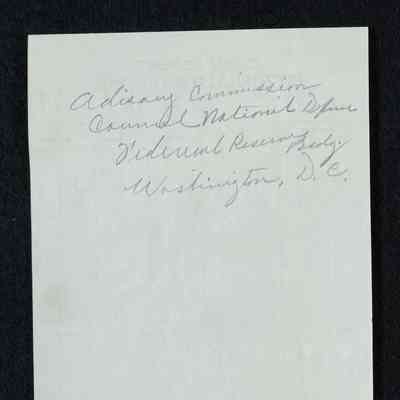 Adisory Commission
Council National Defense
Federal Reserve Bldg.
Washington, D. C.